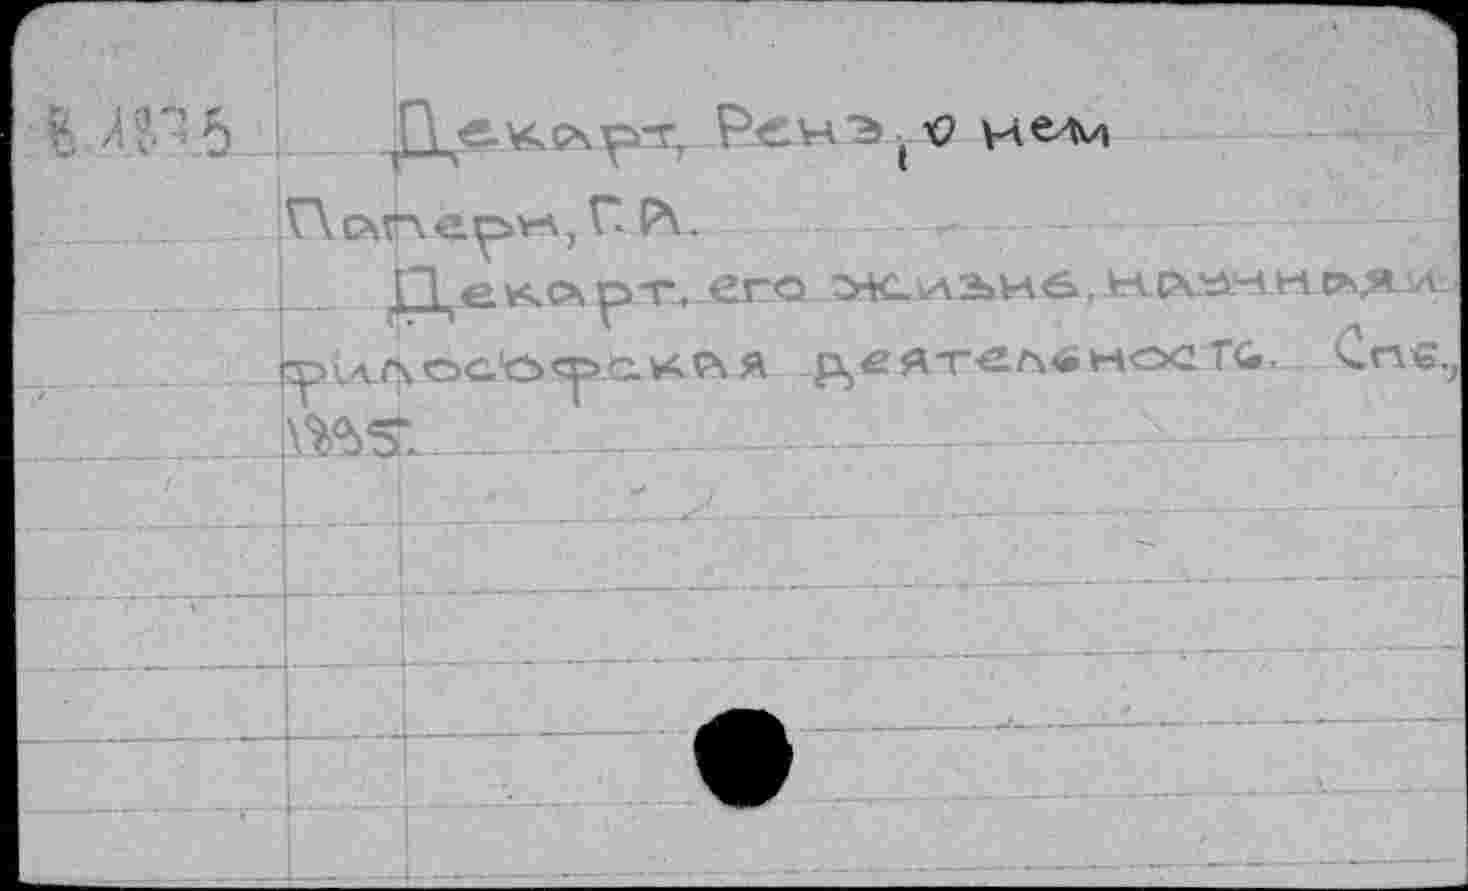 В 1875 Декарт, Ренэ, о нем
Паперн, Г.А.
Декарт, его жизнь, научная и
философская деятельность. Спб.,
1895.